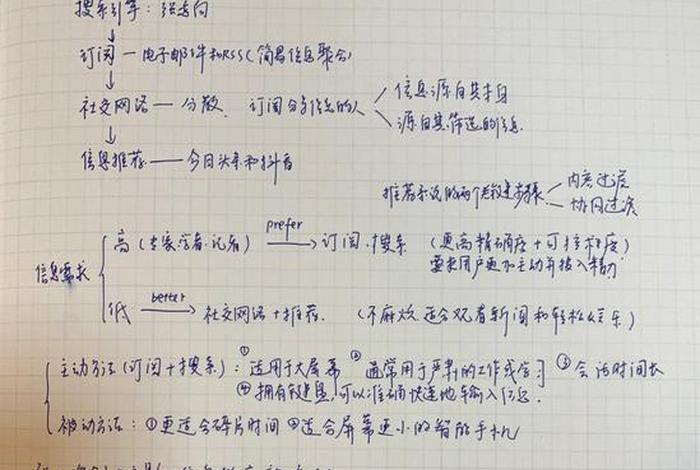 搜索引擎：强走向
↓
订阅 — 电子邮件和RSS（简易信息聚合）
↓
社交网络 — 分散. 订阅分享信息的人
信息源自其本身
源自其筛选的信息.
↓
信息推荐 — 今日头条和抖音
推荐系统的两个关键步骤
内容过滤
协同过滤
信息需求
高（专家.学者.记者） prefer → 订阅.搜索 （更高精确度+可控程度）
要求用户更加主动并投入精力
低 better → 社交网络+推荐. （不麻烦 适合观看新闻和轻松娱乐）
主动方法（订阅+搜索）：①适用于大屏幕 ②通常用于严肃的工作或学习 ③会话时间长
④拥有键盘,可以准确快速地输入信息.
被动方法：①更适合碎片时间 ②适合屏幕更小的智能手机